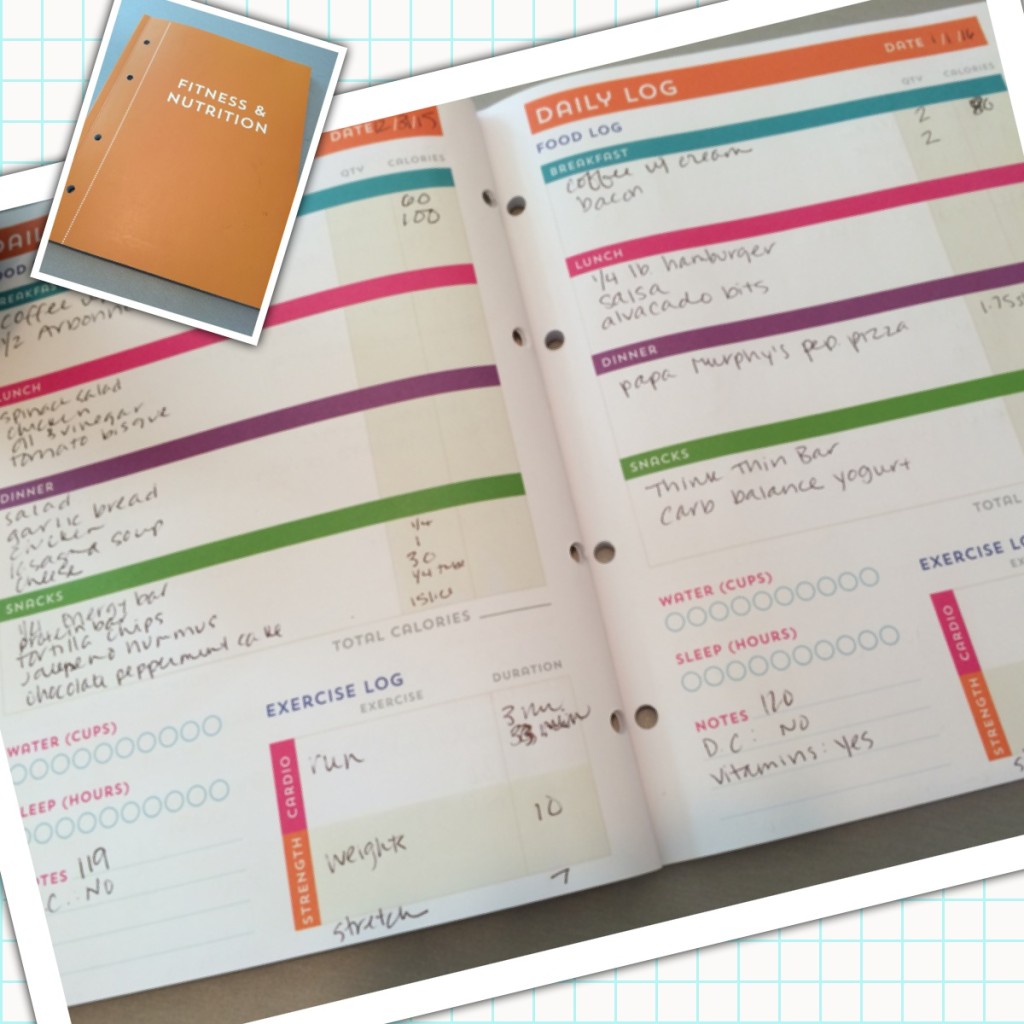 FITNESS &
NUTRITION
DATE
QTY CALORIES
60
100
coffee
1/2 Arbonn
LUNCH
spinach salad
chicken
oil & vinegar
tomato bisque
DINNER
salad
garlic bread
chicken
lasagna soup
cheese
SNACKS
energy bar 1/4
protein bar 1
tortilla chips 30
jalapeno hummus 1/4
chocolate peppermint cake 1 slice
TOTAL CALORIES
WATER (CUPS)
SLEEP (HOURS)
NOTES 119
C.. NO
EXERCISE LOG
EXERCISE DURATION
CARDIO run 3 mi.
STRENGTH weights 10
stretch 7
DAILY LOG DATE 1/1/16
FOOD LOG QTY CALORIES
BREAKFAST
coffee w/ cream 2
bacon 2
LUNCH
1/4 lb hamburger
salsa
alvacado bits
DINNER
papa murphy's pep pizza 1.75 s
SNACKS
Think Thin Bar
carb balance yogurt
TOTAL
WATER (CUPS)
SLEEP (HOURS)
NOTES 120
DC: NO
vitamins: yes
EXERCISE LO
EX
CARDIO
STRENGTH